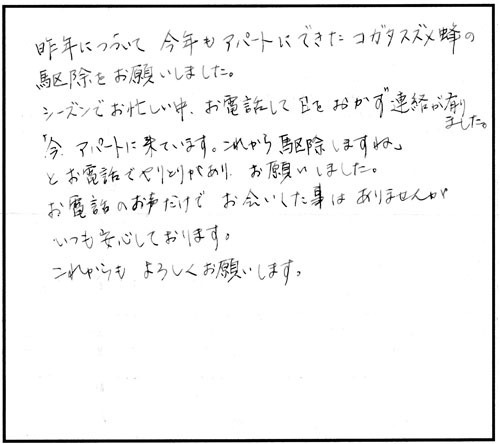 昨年につづいて 今年もアパートにできたコガタスズメ蜂の
駆除をお願いしました。
シーズンでお忙しい中、お電話して日をおかず連絡が有り
ました。
「今、アパートに来ています。これから駆除しますね」
とお電話でやりとりがあり、お願いしました。
お電話のお声だけで お会いした事はありませんが
いつも安心しております。
これからも よろしくお願いします。